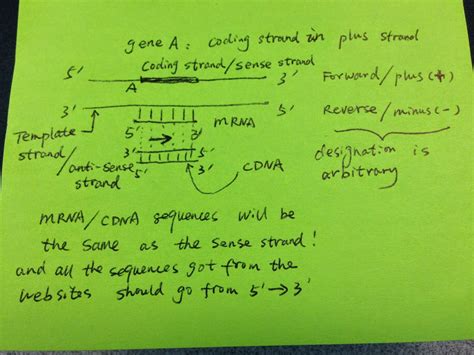 gene A: coding strand in plus strand
coding strand/sense strand
5' A 3' Forward/plus(+)
3' 5' Reverse/minus(-)
Template strand/anti-sense strand
mRNA
5' → 3'
3' 5'
5' 3'
cDNA
designation is
arbitrary
mRNA/cDNA sequences will be
the same as the sense strand!
and all the sequences got from the
websites should go from 5'→3'